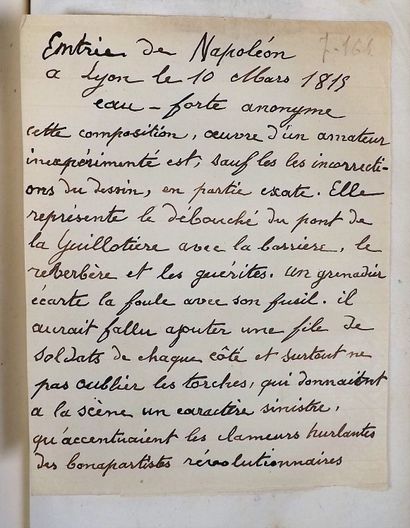 Entrie de Napoléon
7-164
a Lyon le 10 Mars 1815
eau-forte anonyme
cette composition, œuvre d'un amateur
inexpérimenté est, sauf les les incorrecti-
ons du dessin, en partie exate. Elle
représente le débouché du pont de
la Guillotière avec la barrière, le
reverbère et les guérites. un grenadier
écarte la foule avec son fusil. il
aurait fallu ajouter une file de
soldats de chaque côté et surtout ne
pas oublier les torches, qui donnaient
a la scène un caractère sinistre,
qu'accentuaient les clameurs hurlantes
des bonapartistes révolutionnaires